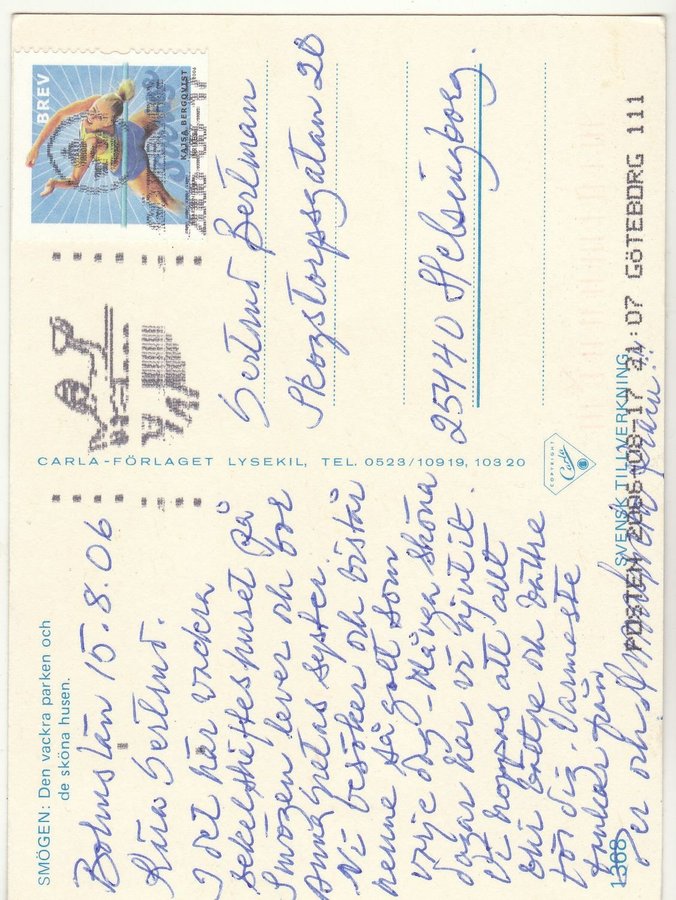 SMÖGEN: Den vackra parken och
de sköna husen.
Bohuslän 15.8.06
Kära Gertrud.
I det här vackra
sekelskifteshuset på
Smögen lever och bor
Anna Gretas syster.
Vi besöker och bistår
henne så gott som
varje dag - Många sköna
dagar har vi njutit.
Vi hoppas att allt
blir bättre och bättre
för dig. Varmaste
tankar från
Per och
1368
CARLA-FÖRLAGET LYSEKIL, TEL. 0523/10919, 10320
COPYRIGHT
Carla
SVENSK TILLVERKNING
BREV
KAJSA BERGQVIST
2006-08-17
Gertrud Bertman
Skogstorpsgatan 20
25440 Helsingborg.
POSTEN 2006-08-17 21:07 GÖTEBORG 111